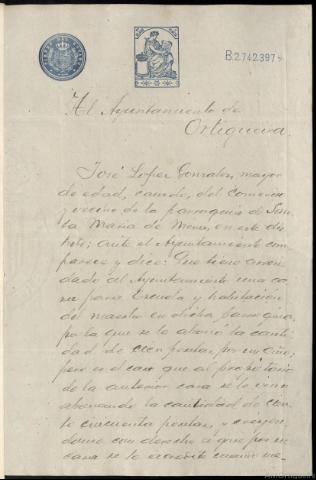 B.2.742.397
Al Ayuntamiento de
Ortigueira
José López Gonzalez, mayor
de edad, casado, del comercio
y vecino de la parroquia de San-
ta María de Mera, en este dis-
trito; ante el Ayuntamiento com-
parece y dice: Que tiene arren-
dado al Ayuntamiento una ca-
sa para Escuela y habitación
del maestro en dicha parroquia,
por la que se le abona la canti-
dad de cien pesetas, por un año;
pero es el caso que al propietario
de la anterior casa se le vino
abonando la cantidad de cien-
to cincuenta pesetas, y creyen-
dome con derecho á que por mi
casa se le